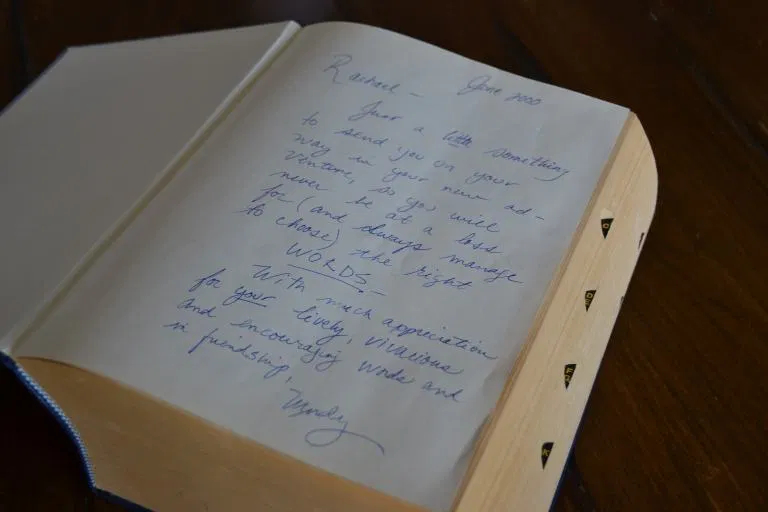 Rachael - June 2000
Just a little something
to send you on your
way in your new ad-
venture, so you will
never be at a loss
for (and always manage
to choose) the right
WORDS.
With much appreciation
for your lively, vivacious
and encouraging words and
in friendship,
Wendy
C
DE
FG
K